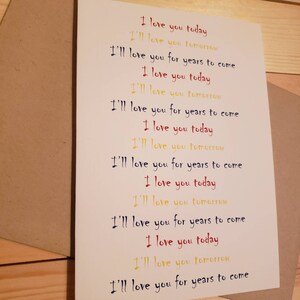 I love you today
I'll love you tomorrow
I'll love you for years to come
I love you today
I'll love you tomorrow
I'll love you for years to come
I love you today
I'll love you tomorrow
I'll love you for years to come
I love you today
I'll love you tomorrow
I'll love you for years to come
I love you today
I'll love you tomorrow
I'll love you for years to come